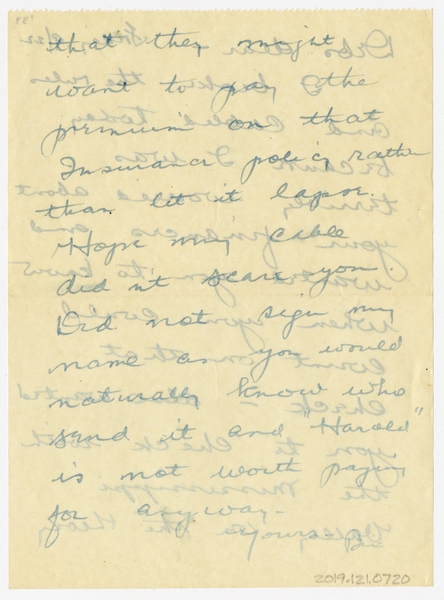 that they might
want to pay the
premium on that
Insurance policy rather
than let it lapse.
Hope my cable
did n't scare you.
Did not sign my
name as you would
naturally know who
send it and "Harold"
is not worth paying
for any way -
Yours
2019.121.0720